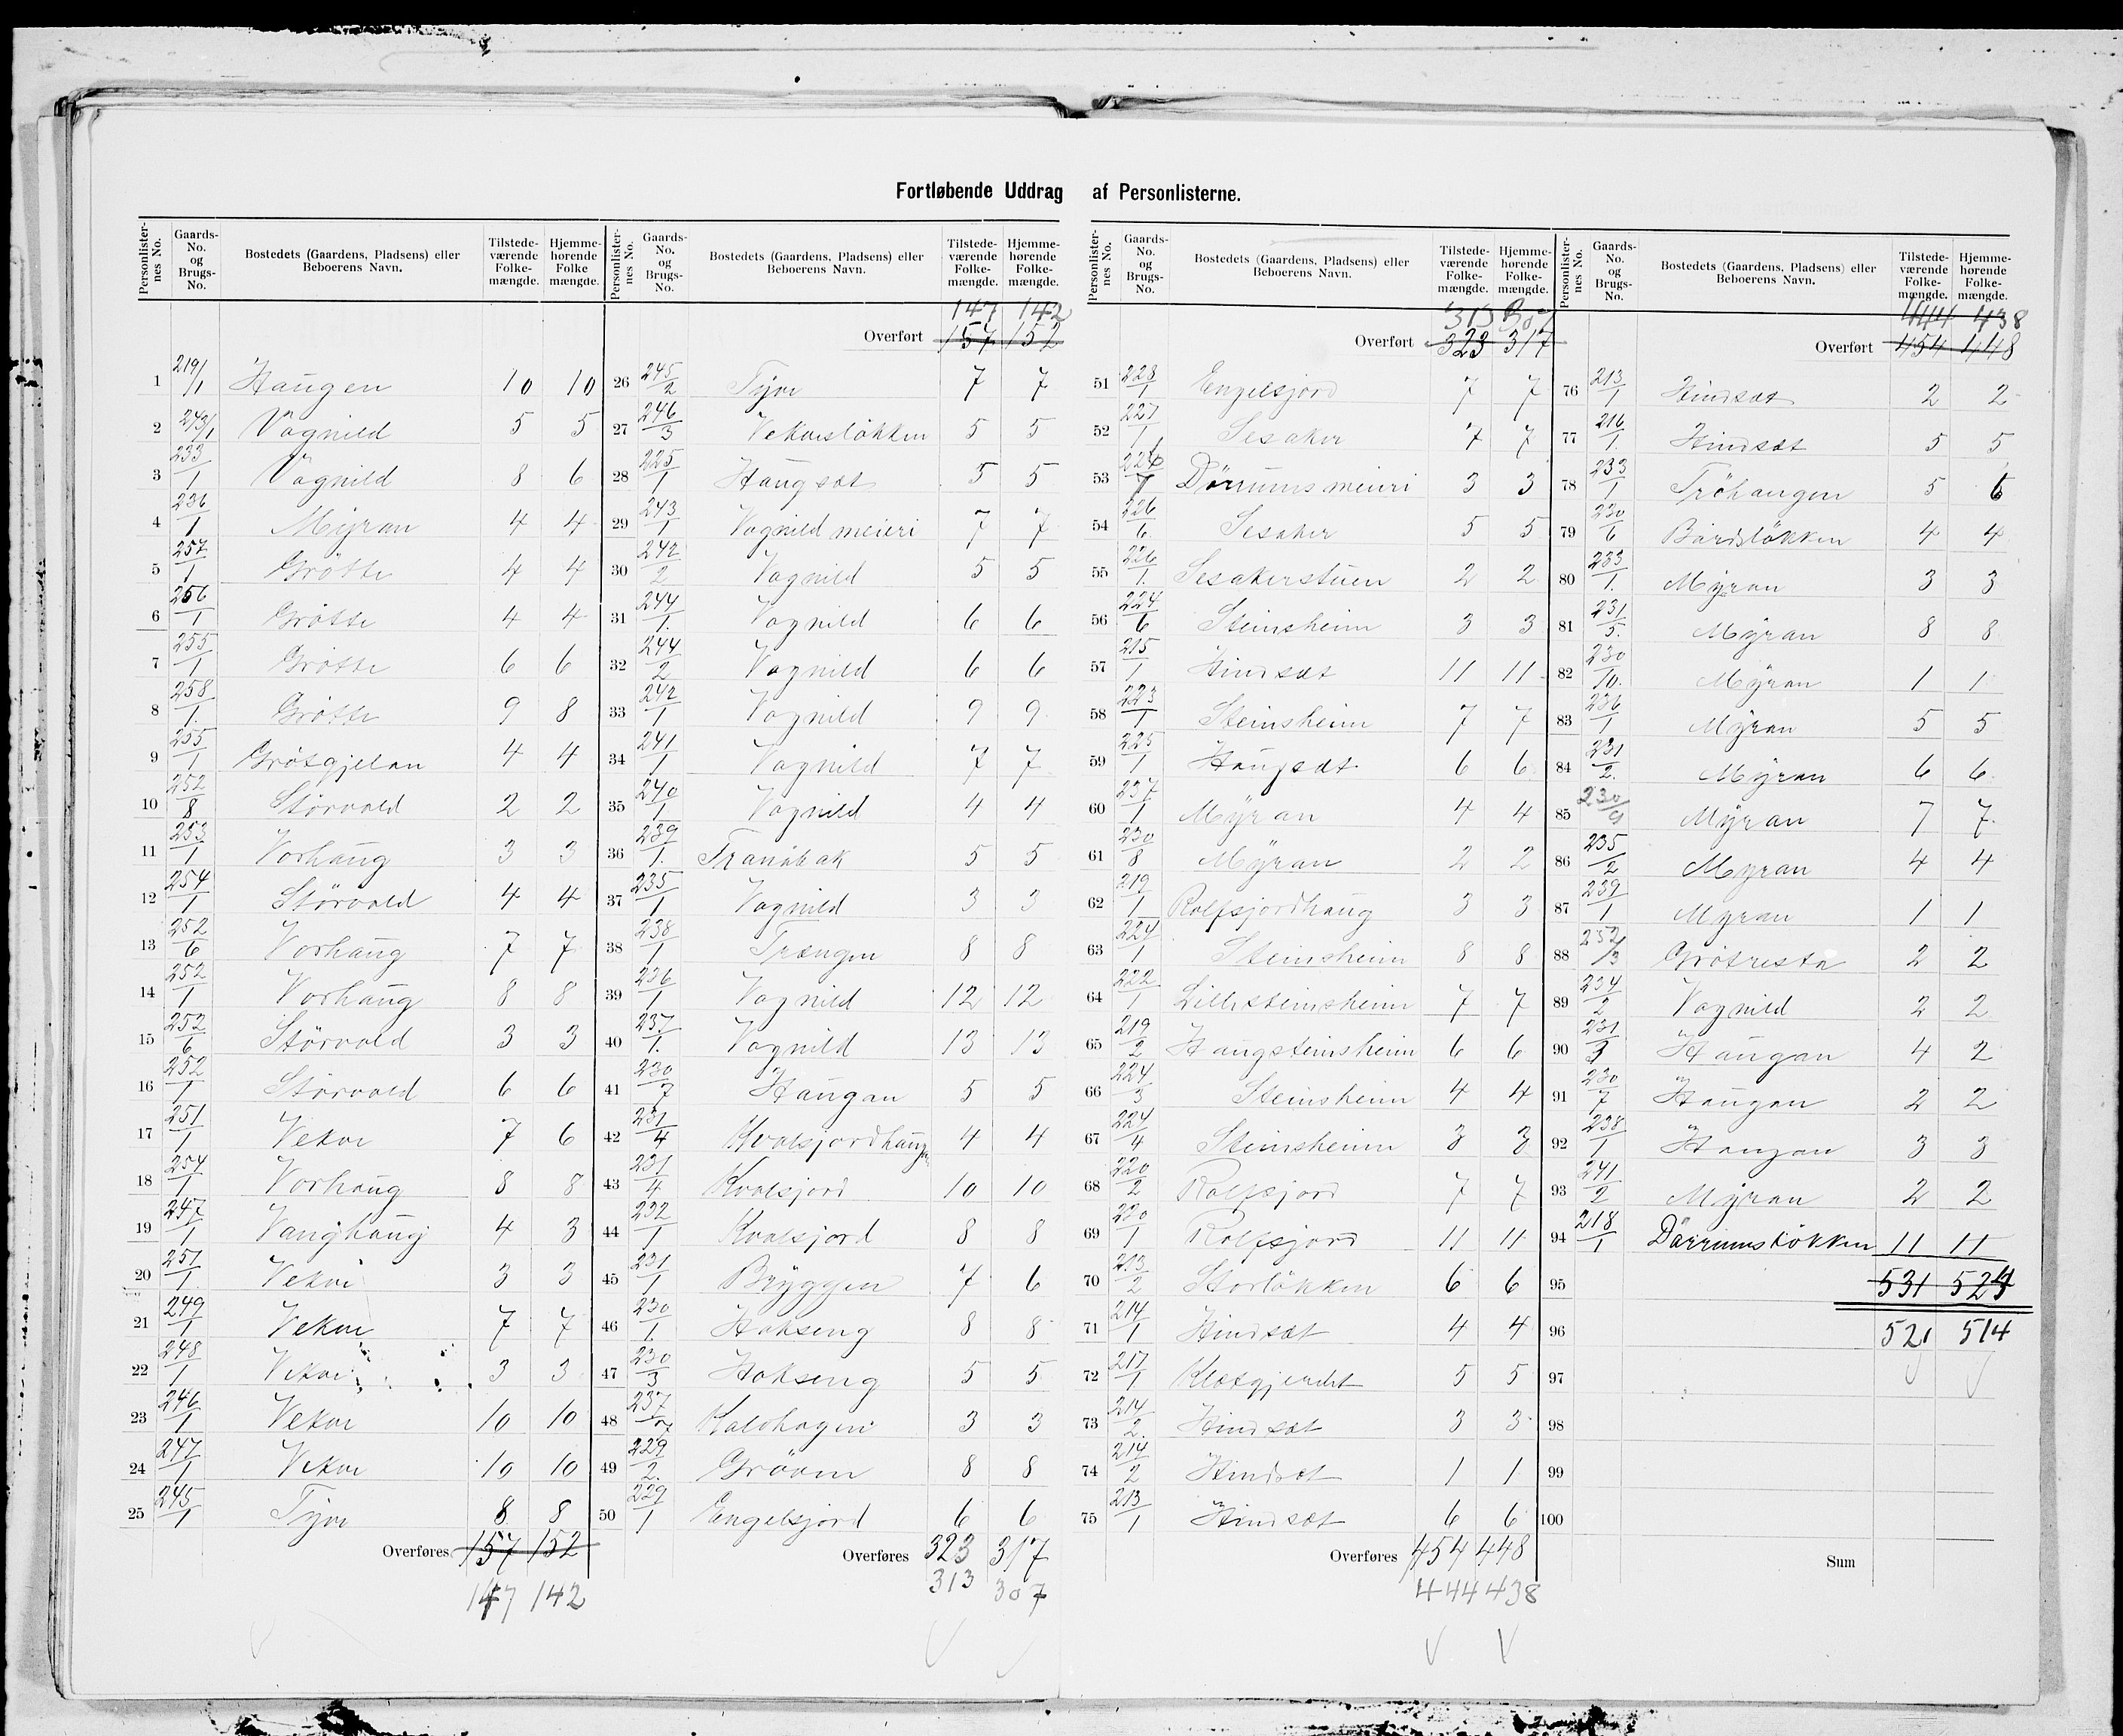 Fortløbende Uddrag af Personlisterne.
Personlister-nes No. Gaards-No. og Brugs-No. Bostedets (Gaardens, Pladsens) eller Beboerens Navn. Tilstede-værende Folke-mængde. Hjemme-hørende Folke mængde.
1 219/1 Haugen 10 10
2 243/1 Vognild 5 5
3 233/1 Vognild 8 6
4 236/1 Myran 4 4
5 257/1 Grötte 4 4
6 256/1 Grötte 4 4
7 255/1 Grötte 6 6
8 258/1 Grötte 9 8
9 255/1 Grötgjelan 4 4
10 252/8 Störvold 2 2
11 253/1 Vorhaug 3 3
12 254/1 Störvold 4 4
13 252/6 Vorhaug 7 7
14 252/1 Vorhaug 8 8
15 252/6 Störvold 3 3
16 252/1 Störvold 6 6
17 251/1 Vekve 7 6
18 254/1 Vorhaug 8 8
19 247/1 Vanghaug 4 3
20 251/1 Vekve 3 3
21 249/1 Vekve 7 7
22 248/1 Vekve 3 3
23 246/1 Vekve 10 10
24 247/1 Vekve 10 10
25 245/1 Tyve 8 8
Overføres 157 152
147 142
Personlister-nes No. Gaards-No. og Brugs-No. Bostedets (Gaardens, Pladsens) eller Beboerens Navn. Tilstede-værende Folke-mængde. Hjemme-hørende Folke-mængde.
147 142
Overført 157 152
26 245/2 Tyve 7 7
27 246/3 Vekveslökken 5 5
28 225/1 Haugset 5 5
29 243/1 Vognild meieri 7 7
30 242/2 Vognild 5 5
31 244/1 Vognild 6 6
32 244/2 Vognild 6 6
33 242/1 Vognild 9 9
34 241/1 Vognild 7 7
35 240/1 Vognild 4 4
36 239/1 Tranabak 5 5
37 235/1 Vognild 3 3
38 238/1 Trængen 8 8
39 236/1 Vognild 12 12
40 237/1 Vognild 13 13
41 230/7 Haugan 5 5
42 231/4 Kvalsjordhaugen 4 4
43 231/4 Kvalsjord 10 10
44 232/1 Kvalsjord 8 8
45 231/1 Bryggen 7 6
46 230/1 Hokseng 8 8
47 230/3 Hokseng 5 5
48 237/7 Kalvhagen 3 3
49 229/2 Gröven 8 8
50 229/1 Engelsjord 6 6
Overføres 323 317
313 307
Personlister-nes No. Gaards-No. og Brugs-No. Bostedets (Gaardens, Pladsens) eller Beboerens Navn. Tilstede-værende Folke-mængde. Hjemme-hørende Folke-mængde.
313 307
Overført 323 317
51 228/1 Engelsjord 7 7
52 227/1 Sesaker 7 7
53 226/7 Dörrums meieri 3 3
54 226/6 Sesaker 5 5
55 226/1 Sesakerstuen 2 2
56 224/6 Steinsheim 3 3
57 215/1 Hindset 11 11
58 223/1 Steinsheim 7 7
59 225/1 Haugset 6 6
60 237/1 Myran 4 4
61 230/8 Myran 2 2
62 219/1 Rolfsjordhaug 3 3
63 224/1 Steinsheim 8 8
64 222/1 Lillesteinsheim 7 7
65 219/2 Haugsteinsheim 6 6
66 224/3 Steinsheim 4 4
67 224/4 Steinsheim 3 3
68 220/2 Rolfsjord 7 7
69 220/1 Rolfsjord 11 11
70 213/2 Storlökken 6 6
71 214/1 Hindset 4 4
72 217/1 Kletgjerdet 5 5
73 214/2 Hindset 3 3
74 214/2 Hindset 1 1
75 213/1 Hindset 6 6
Overføres 454 448
444 438
Personlister-nes No. Gaards-No. og Brugs-No. Bostedets (Gaardens, Pladsens) eller Beboerens Navn. Tilstede-værende Folke-mængde. Hjemme-hørende Folke-mængde.
444 438
Overført 454 448
76 213/1 Hindset 2 2
77 216/1 Hindset 5 5
78 233/1 Tröhaugen 5 6
79 230/6 Bårdslökken 4 4
80 233/1 Myran 3 3
81 231/5 Myran 8 8
82 230/10 Myran 1 1
83 236/1 Myran 5 5
84 231/2 Myran 6 6
85 230/9 Myran 7 7
86 235/2 Myran 4 4
87 239/1 Myran 1 1
88 252/13 Grötresta 2 2
89 234/2 Vognild 2 2
90 231/3 Haugan 4 2
91 230/7 Haugan 2 2
92 238/1 Haugan 3 3
93 241/2 Myran 2 2
94 218/1 Dörrumslökken 11 11
95 531 524
96 521 514
97
98
99
100
Sum